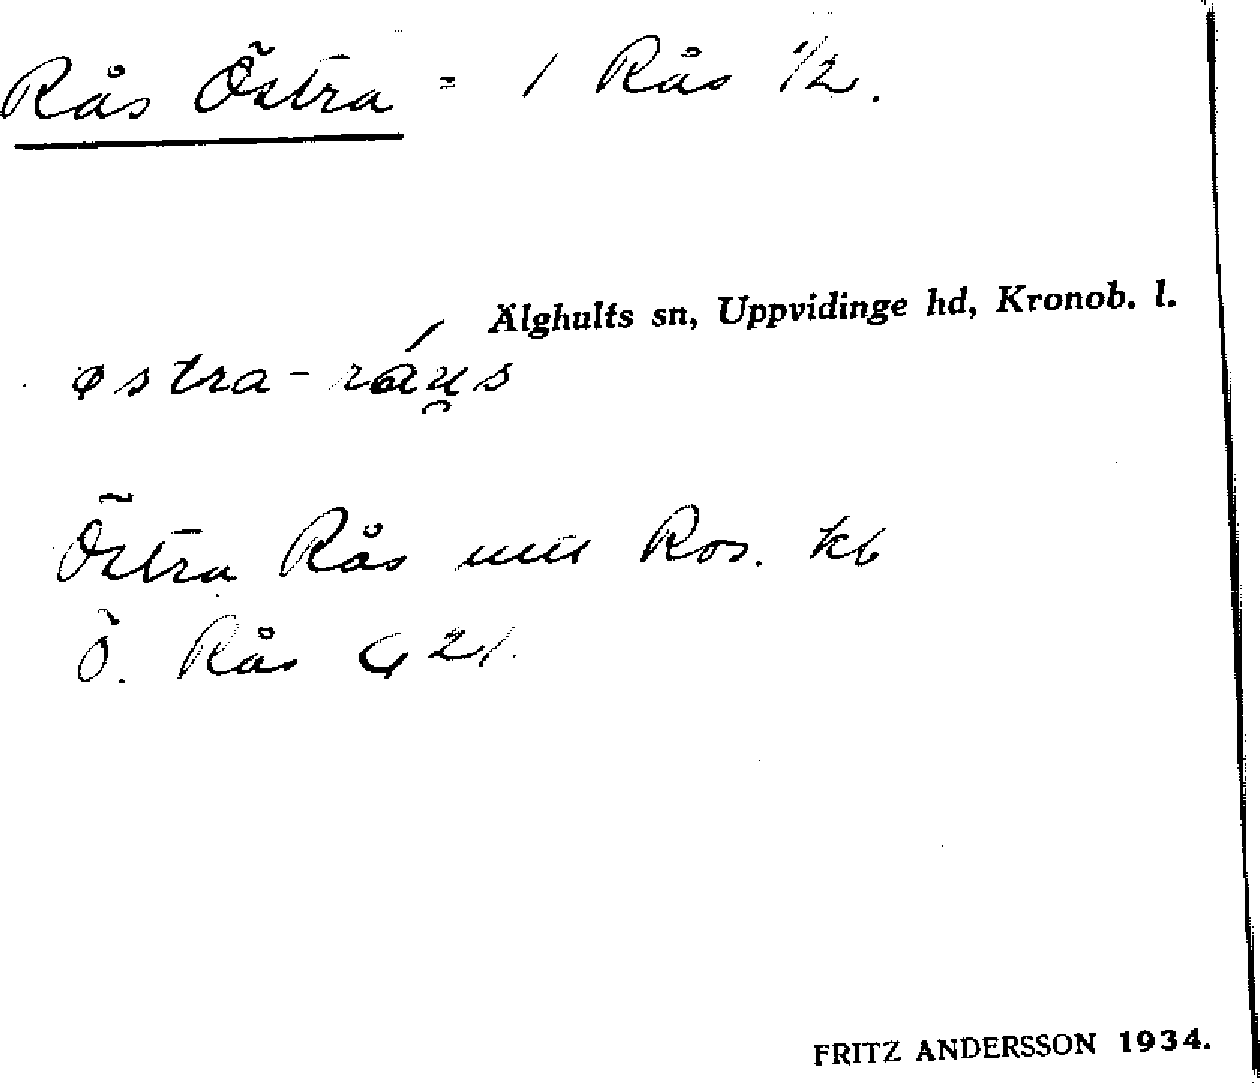 Rås Östra = 1 Rås 1/2.
Älghults sn, Uppvidinge hd, Kronob. l.
østra-ráu̯s
Östra Rås Ros. kb
Ö. Rås G 21.
FRITZ ANDERSSON 1934.